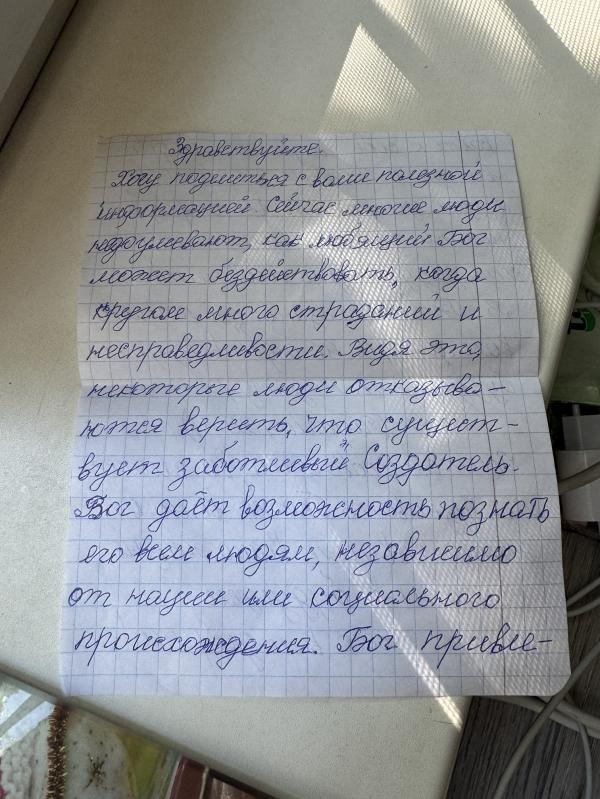 Здравствуйте.
Хочу поделиться с вами полезной
информацией. Сейчас многие люди
недоумевают, как любящий Бог
может бездействовать, когда
кругом много страданий и
несправедливости. Видя это,
некоторые люди отказыва-
ются верить, что сущест-
вует заботливый Создатель.
Бог даёт возможность познать
его всем людям, независимо
от нации или социального
происхождения. Бог привле-